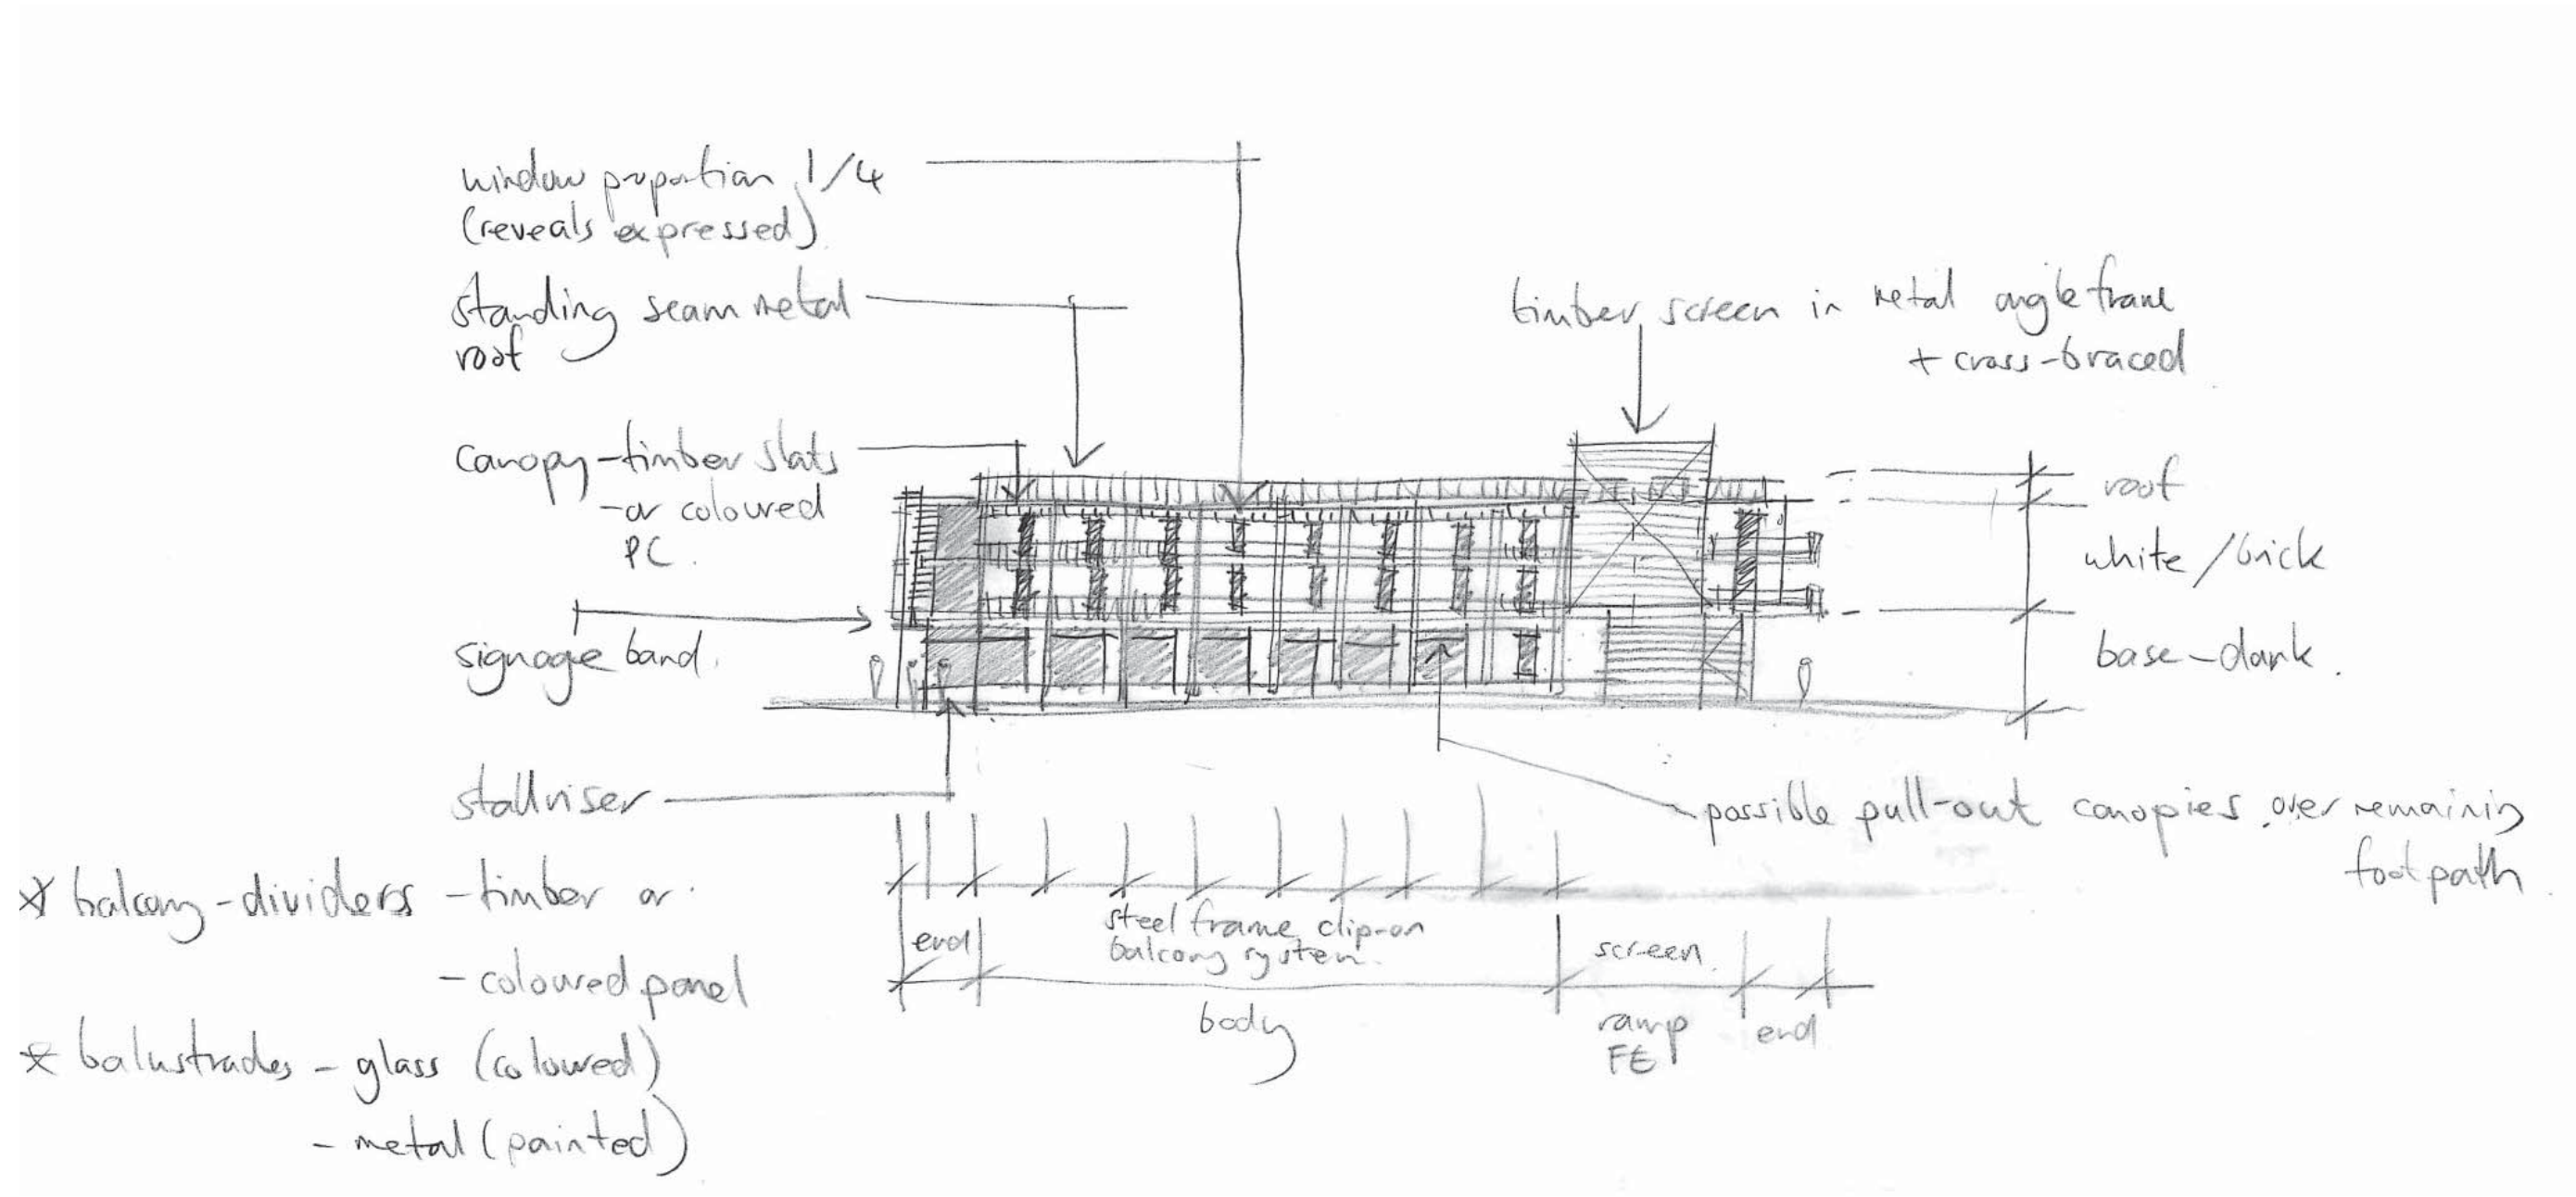 window proportion 1/4
(reveals expressed)
standing seam metal
roof
canopy - timber slats
- or coloured
PC.
signage band.
stallriser
* balcony - dividers - timber or
- coloured panel
* balustrades - glass (coloured)
- metal (painted)
timber screen in metal angle frame
+ cross-braced
roof
white / brick
base - dark.
possible pull-out canopies over remaining
footpath
end
steel frame clip-on
balcony system.
body
screen.
ramp
FE
end